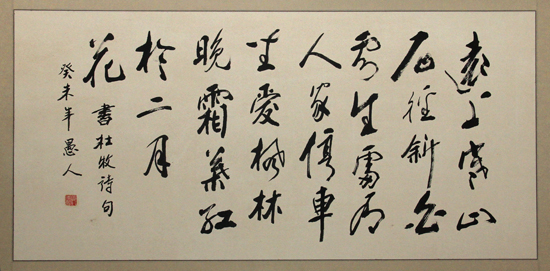 遠上寒山
石徑斜白
雲生處有
人家停車
坐愛楓林
晚霜葉紅
於二月
花
書杜牧詩句
癸未年愚人